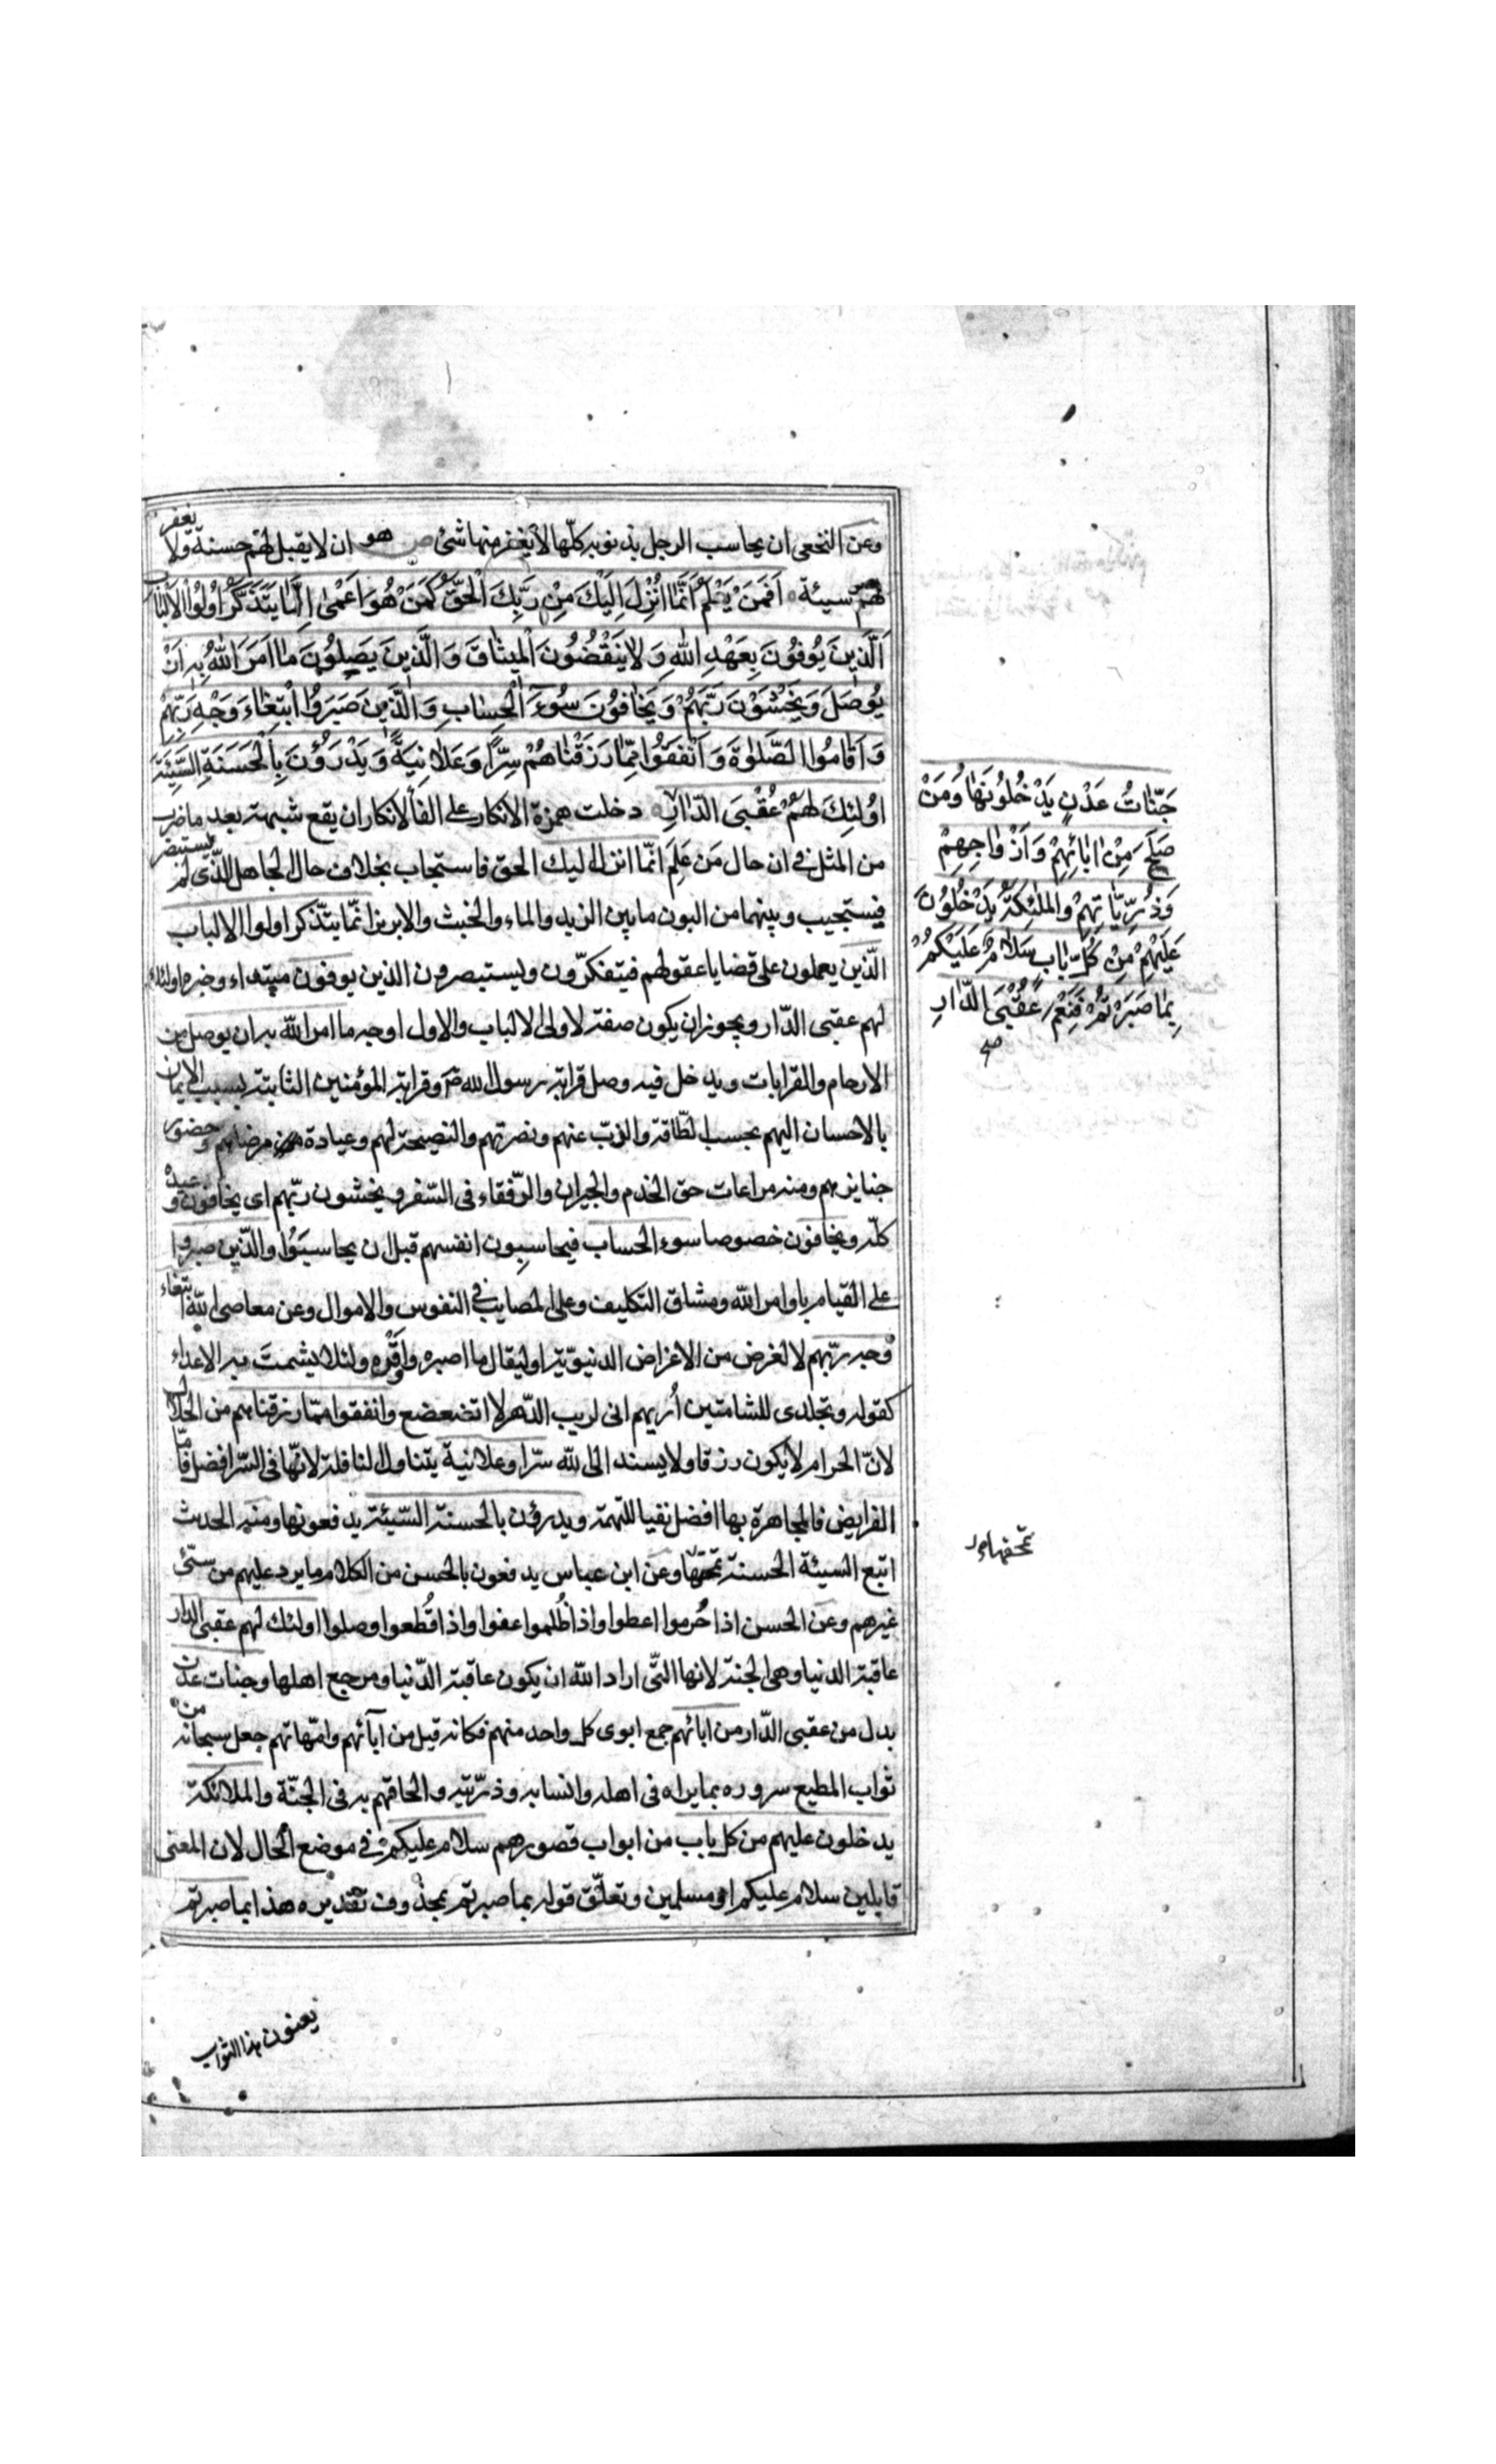 وعن النخعی ان یحاسب الرجل بذنوبه کلّها لا یغفر منها شئ هو ان لا یقبل لهم حسنة ولا یغفر
لهم سیئة اَفَمَنْ یَعْلَمُ اَنَّمٰا اُنْزِلَ اِلَیْكَ مِنْ رَبِّكَ الْحَقُّ كَمَنْ هُوَ اَعْمٰی اِنَّمٰا یَتَذَكَّرُ اُولُوا الْاَلْبٰابِ
اَلَّذینَ یُوفُونَ بِعَهْدِ اللهِ وَ لاٰ یَنْقُضُونَ الْمیثٰاقَ وَ الَّذینَ یَصِلُونَ مٰا اَمَرَ اللهُ بِهِ اَنْ
یُوصَلَ وَ یَخْشَوْنَ رَبَّهُمْ وَ یَخٰافُونَ سُوءَ الْحِسٰابِ وَ الَّذینَ صَبَرُوا ابْتِغٰاءَ وَجْهِ رَبِّهِمْ
وَ اَقٰامُوا الصَّلٰوةَ وَ اَنْفَقُوا مِمّٰا رَزَقْنٰاهُمْ سِرًّا وَ عَلاٰنِیَةً وَ یَدْرَؤُنَ بِالْحَسَنَةِ السَّیِّئَةَ
اُولٰئِكَ لَهُمْ عُقْبَی الدّٰارِ دخلت همزة الانکار علی الفا لانکار ان یقع شبهة بعد ما ضرب
من المثل فی ان حال مَن عَلِمَ انّما انزل الیك الحق فاستجاب بخلاف حال الجاهل الذّی لم یستبصر
فیستجیب وبینهما من البون ما بین الزبد والماء والخبث والابریز انّما یتذّکر اولوا الالباب
الّذین یعملون علی قضایا عقولهم فیتفکرّون ویستبصرون الذین یوفون مبتداء وخبره اولئك
لهم عقبی الدّار ویجوز ان یکون صفة لاولی الالباب والاول اوجه ما امر اللّه به ان یوصل من
الارحام والقرابات ویدخل فیه وصل قرابة رسول الله ص وقرابة المؤمنین الثابتة بسبب الایمان
بالاحسان الیهم بحسب الطّاقة والذبّ عنهم ونصرتهم والنصیحة لهم وعیادة مرضاهم وحضور
جنایزهم ومنه مراعات حق الخدم والجیران والرّفقاء فی السّفر ویخشون ربّهم ای یخافون وعیده
کلّه ویخافون خصوصا سوء الحساب فیحاسِبون انفسهم قبل ان یحاسَبَوُا والذّین صبروا
علی القیام باوامر اللّه ومشاق التکلیف وعلی المصایب فی النفوس والاموال وعن معاصی اللّه ابتغاء
وجه ربّهم لا لغرض من الاغراض الدنیویّة او لیقال ما اصبره واوْقَره ولئلا یشمتَ به الاعداء
کقوله وتجلدی للشامتین اُریهم انی لریب الدّهر لا اتضعضع وانفقوا ممّا رزقناهم من الحلال
لانّ الحرام لا یکون رزقا ولا یسند الی اللّه سرّا وعلانیة یتناول النافلة لانّها فی السّر افضل فامّا
الفرایض فالمجاهرة بها افضل نفیا للتهمة ویدرؤن بالحسنة السّیئة یدفعونها ومنه الحدیث
اتبع السیئة الحسنة تمحها وعن ابن عباس یدفعون بالحسن من الکلام ما یرد علیهم من سیّئ
غیرهم وعن الحسن اذا حُرموا اعطوا واذا ظُلموا عفوا واذا قُطعوا وصلوا اولئك لهم عقبی الدار
عاقبة الدنیا وهی الجنة لانها الّتی اراد اللّه ان یکون عاقبة الدّنیا ومرجع اهلها وجنات عدن
بدل من عقبی الدّار من ابائهم جمع ابوی کل واحد منهم فکانه قیل من آبائهم وامّهاتهم جعل سبحانه من
ثواب المطیع سروره بما یراه فی اهله وانسابه وذرّیته والحاقهم به فی الجنّة والملائکة
یدخلون علیهم من کل باب من ابواب قصورهم سلام علیکم فی موضع الحال لان المعنی
قایلین سلام علیکم او مسلمین وتعلّق قوله بما صبرتم بمحذوف تقدیره هذا بما صبرتم
یعنون هذا الثواب
جَنّٰاتُ عَدْنٍ یَدْخُلُونَهٰا وَمَنْ
صَلَحَ مِنْ اٰبٰائِهِمْ وَ اَزْوٰاجِهِمْ
وَذُرِّیّٰاتِهِمْ وَالْمَلٰئِكَةُ یَدْخُلُونَ
عَلَیْهِمْ مِنْ كُلِّ بٰابٍ سَلاٰمٌ عَلَیْكُمْ
بِمٰا صَبَرْتُمْ فَنِعْمَ عُقْبَی الدّٰارِ
صح